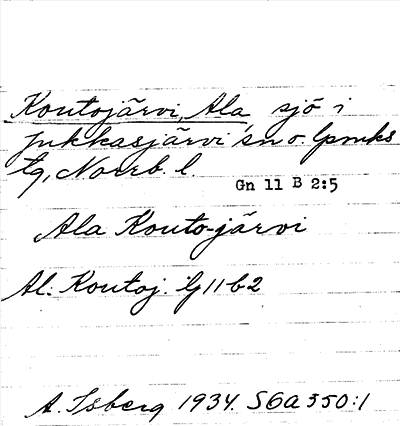 Koutojärvi, Ala, sjö i
Jukkasjärvi sn o. lpmks
tg, Norrb. l.
Gn 11 B 2:5
Ala Kouto-järvi
Al. Koutoj. G11b2
A. Isberg 1934. SGA 350:1